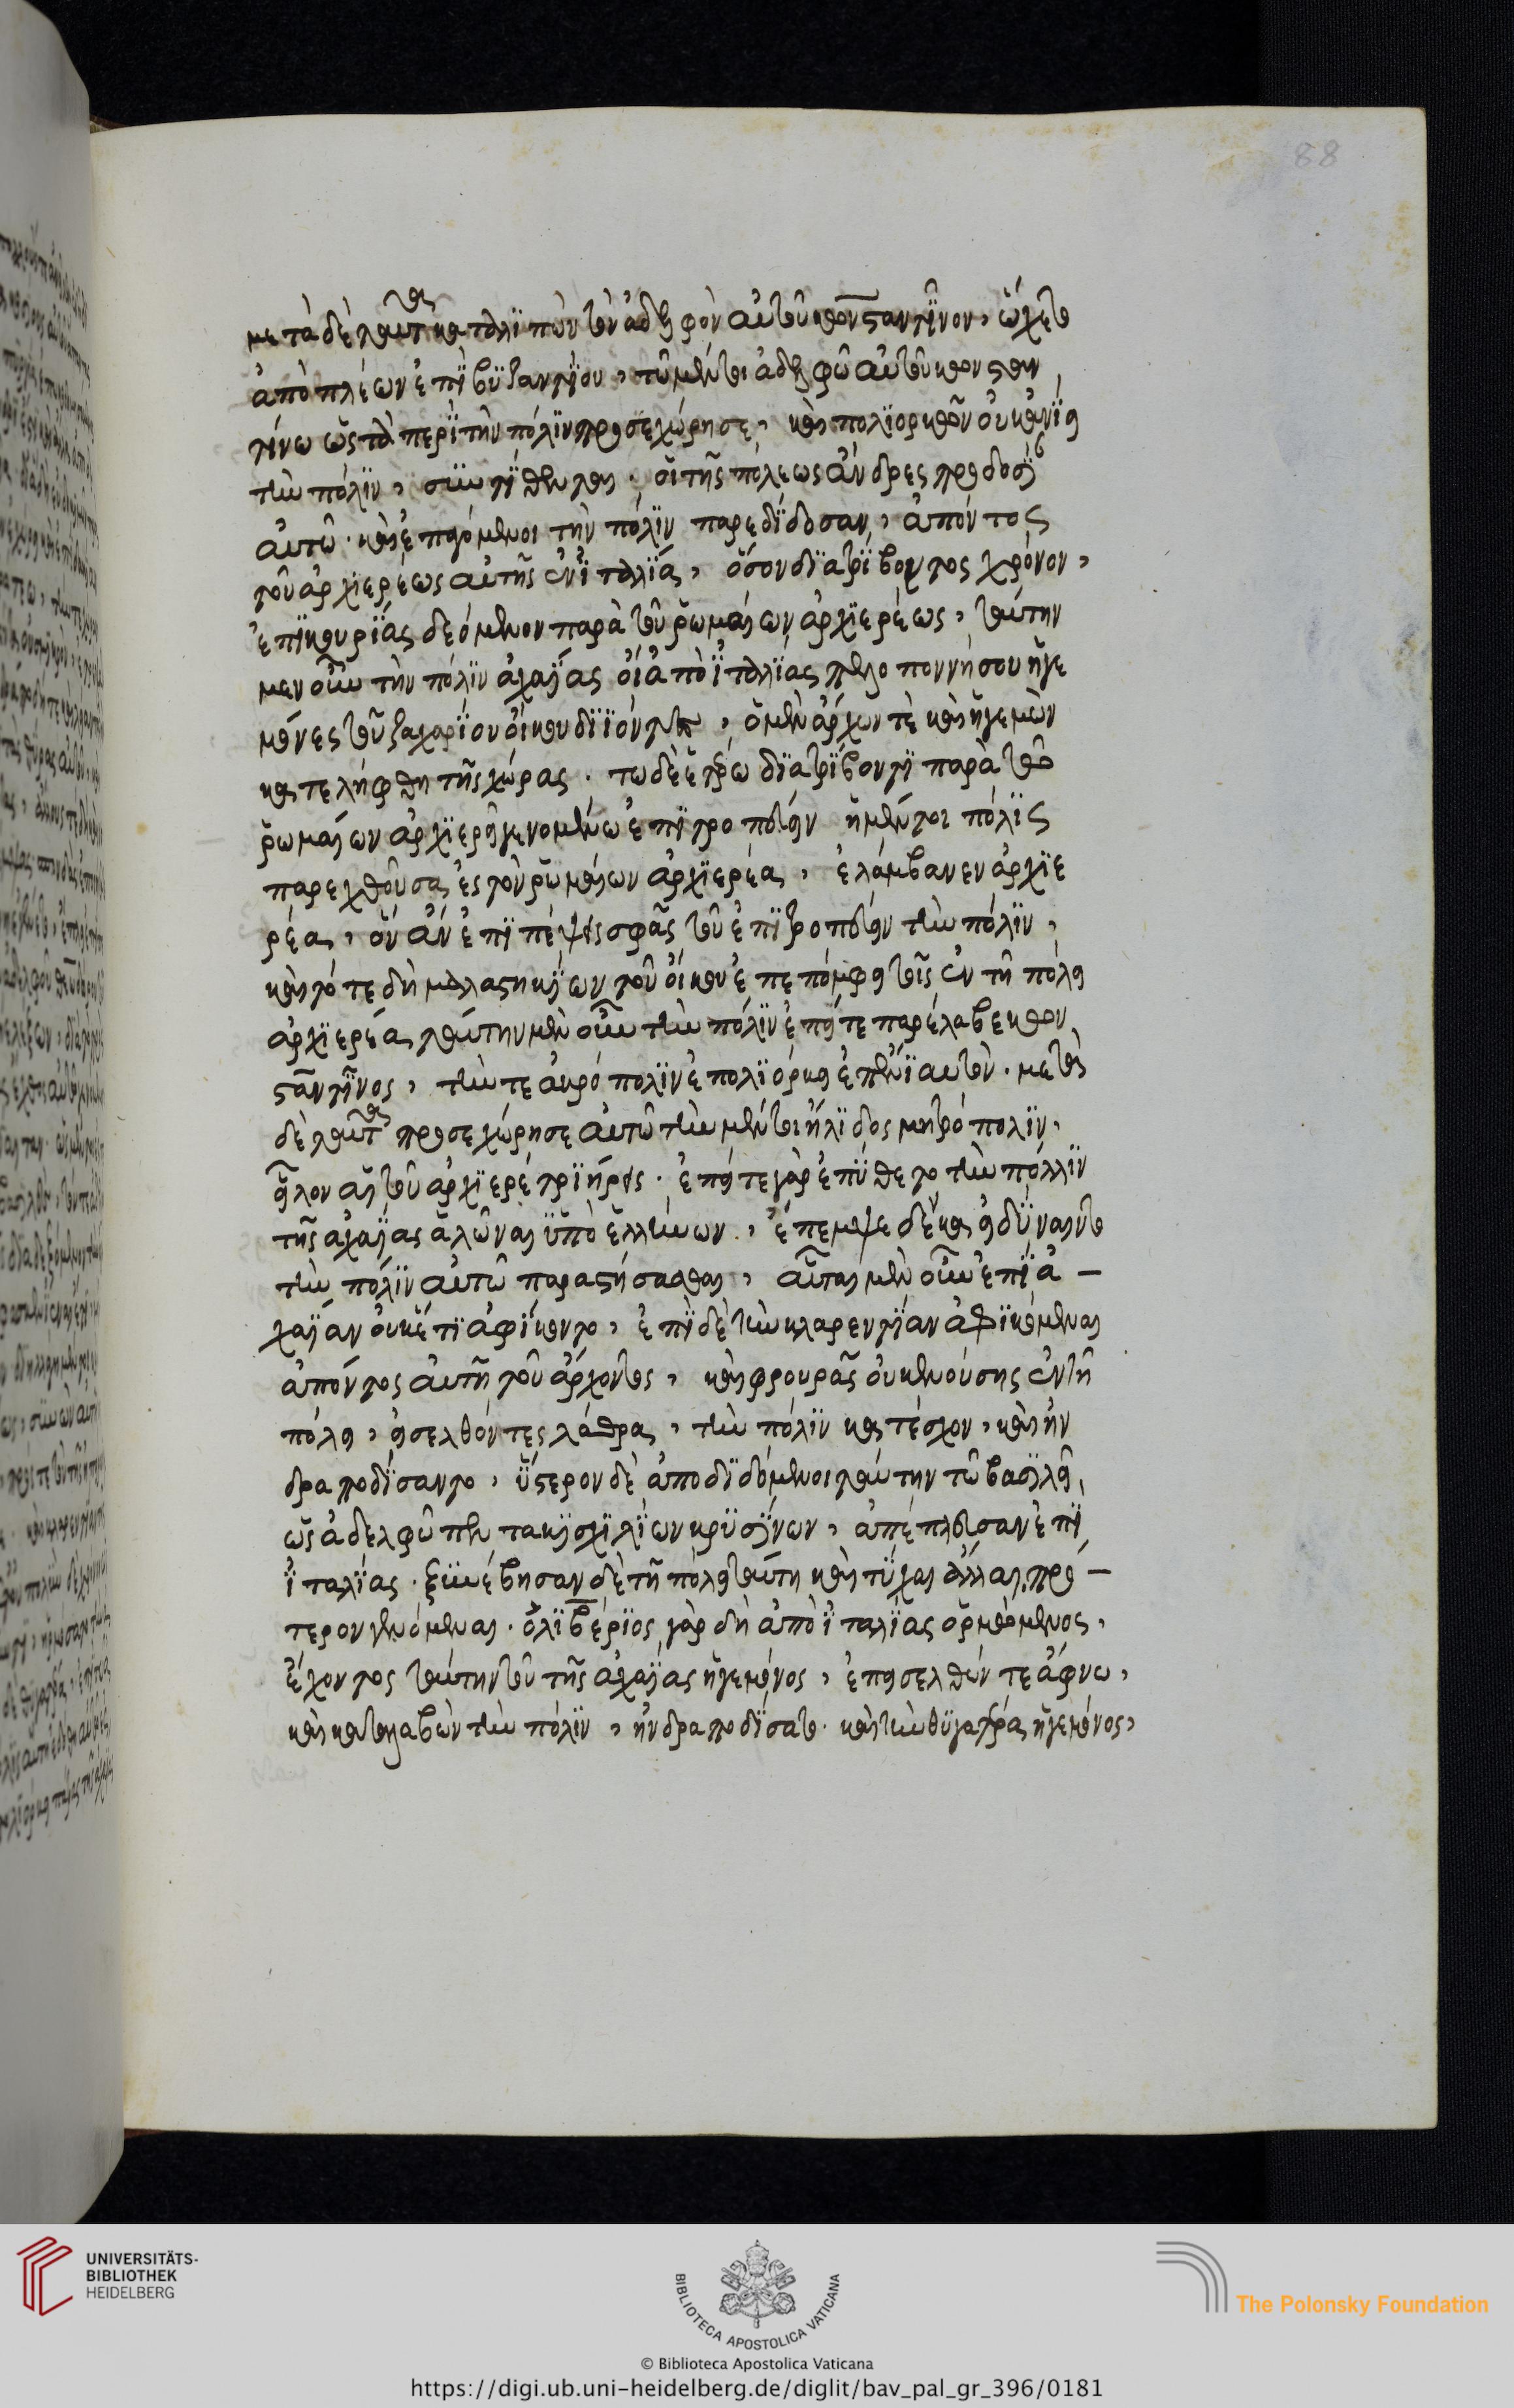 88
μετὰ δὲ ταῦτα καταλϊπὼν τὸν ἀδελφὸν αὐτοῦ κονσταντῖνον, ὤχετο
ἀποπλέων ἐπῒ βϋζαντΐου, τῶ μέντοι ἀδελφῶ αὐτοῦ κονσταν
τίνω ὥς τὰ περῒ τὴν πόλϊν προσεχώρησε, καὶ πολϊορκῶν οὐκ ἀνΐει
τὴν πόλϊν, σὺντΐθενται οἱ τῆς πόλεως ἄνδρες προδοσΐαν
αὐτῶ. καὶ ἐπαγόμενοι τὴν πόλϊν παρεδΐδοσαν, ἀπόντος
τοῦ ἀρχϊερέως αὐτῆς ἐν ἰταλΐα, ὅσον δϊατρΐβοντος χρόνον,
ἐπϊκουρΐας δεόμενον παρὰ τοῦ ῥωμαίων ἀρχϊερέως, ταύτην
μεν οὖν τὴν πόλϊν ἀχαΐας οἱ ἀπὸ ἰταλΐας πελοποννήσου ἡγε
μόνες τοῦ ζαχαρΐου οἴκου δϊϊόντος, ὁ μὲν ἄρχων τὲ καὶ ἡγεμὼν
κατελήφθη τῆς χώρας. τω δὲ ἑτέρω δϊατρΐβοντϊ παρὰ τῶ
ῥωμαίων ἀρχϊερεῖ γενομένω ἐπϊτροπεύειν ἡ μέντοι πόλϊς
παρεχθοῦσα ἐς τὸν ῥωμαίων ἀρχϊερέα, ἐλάμβανεν ἀρχϊε
ρέα, ὃν ἂν ἐπϊπέμψειε σφᾶς τοῦ ἐπϊτροπεύειν τὴν πόλϊν,
καὶ τότε δὴ μαλαστηκΐων τοῦ οἴκου ἐπεπόμφει τοῖς ἐν τῆ πόλει
ἀρχϊερέα, ταύτην μὲν οὖν τὴν πόλϊν ἐπεί τε παρέλαβε κον
σταντῖνος, τήν τε ἀκρόπολϊν ἐπολϊόρκει ἐπ' ἐνϊαυτόν. μετὰ
δὲ ταῦτα προσεχώρησε αὐτῶ τὴν μέντοι ἤλϊδος μητρόπολϊν,
εἷλον αἱ τοῦ ἀρχϊερέως τρϊήρεις. ἐπεί τε γὰρ ἐπΰθετο τὴν πόλλϊν
τῆς ἀχαΐας ἁλῶναι ὑπὸ ἑλλήνων, ἔπεμψε δέκα εἰ δΰναιντο
τὴν πόλϊν αὐτῶ παραστήσασθαι, αὗται μὲν οὖν ἐπῒ ἀ –
χαΐαν οὐκέτϊ ἀφΐκοντο, ἐπῒ δὲ τὴν κλαρεντΐαν ἀφϊκόμεναι
ἀπόντος αὐτῆ τοῦ ἄρχοντος, καὶ φρουρᾶς οὐκ ἐνούσης ἐν τῆ
πόλει, εἰσελθόντες λάθρα, τὴν πόλϊν κατέσχον, καὶ ἠν
δραποδΐσαντο, ὕστερον δὲ ἀποδϊδόμενοι ταύτην τῶ βασϊλεῖ,
ὡς ἀδελφῶ πεντακϊσχϊλΐων χρϋσΐνων, ἀπέπλευσαν ἐπῒ
ἰταλΐας. ξυνέβησαν δὲ τῆ πόλει ταύτη καὶ τΰχαι ἄλλαι, πρό –
τερον γενόμεναι. ὀλϊβέρϊος γὰρ δὴ ἀπὸ ἰταλΐας ὁρμώμενος,
ἔχοντος ταύτην τοῦ τῆς ἀχαΐας ἡγεμόνος, ἐπεισελθών τε ἄφνω,
καὶ καταλαβὼν τὴν πόλϊν, ἠνδραποδΐσατο. καὶ τὴν θϋγατέρα ἡγεμόνος,
UNIVERSITÄTS-
BIBLIOTHEK
HEIDELBERG
BIBLIOTECA APOSTOLICA VATICANA
The Polonsky Foundation
© Biblioteca Apostolica Vaticana
https://digi.ub.uni-heidelberg.de/diglit/bav_pal_gr_396/0181